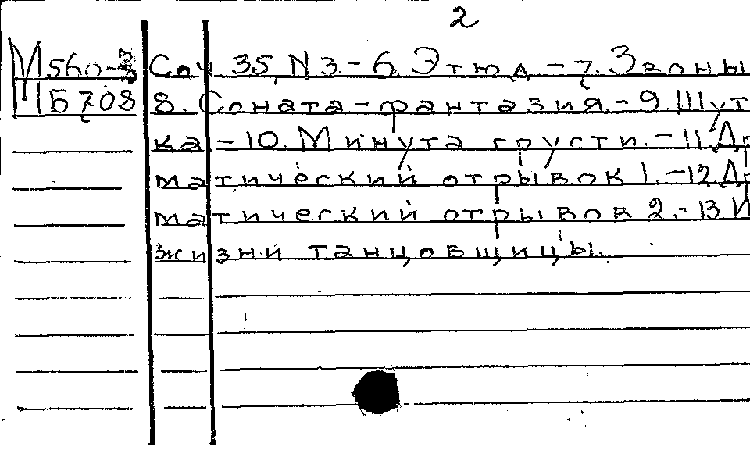 2
М560-3 Соч. 35, N 3.- 6. Этюд.- 7. Звоны
Б708 8. Соната-фантазия.- 9. Шут
ка.-10. Минута грусти.-11. Др
матический отрывок 1.-12. Др
матический отрывов 2.-13 И
жизни танцовщицы.